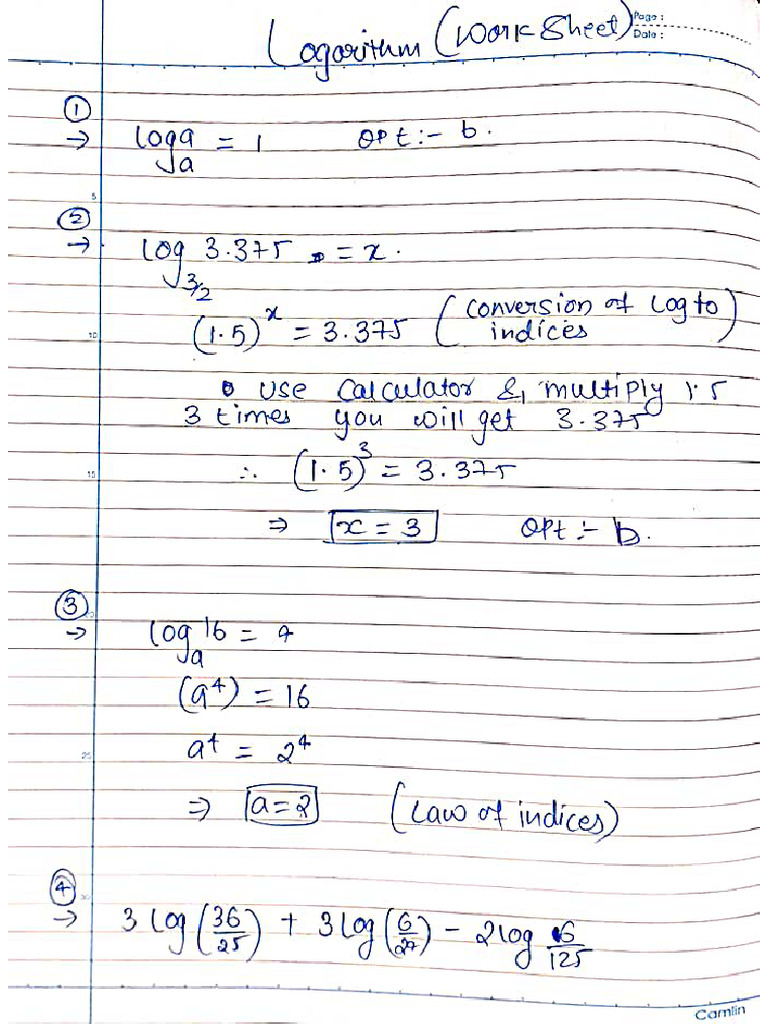 Logarithm (Work Sheet)
Page :
Date :
①
→ log_a a = 1 opt :- b.
5
②
→ log_{3/2} 3.375 = x.
10
(1.5)^x = 3.375 (conversion of log to indices)
• use calculator & multiply 1.5
3 times you will get 3.375
15
∴ (1.5)^3 = 3.375
⇒ x = 3 opt :- b.
③
→ log_a 16 = 4
(a^4) = 16
25
a^4 = 2^4
⇒ a = 2 (Law of indices)
④
30
→ 3 log (36/25) + 3 log (6/27) - 2 log 6/125
Camlin